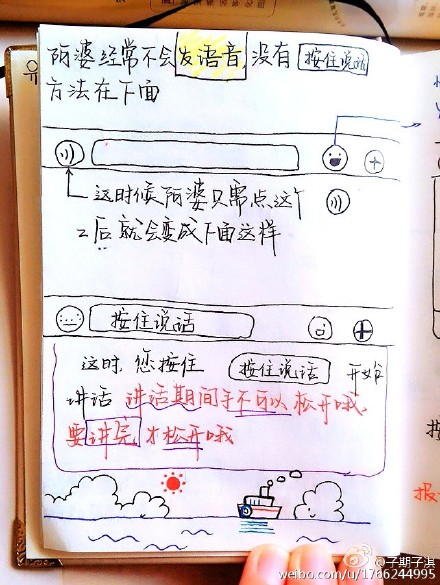 阿婆经常不会发语音,没有 按住说话
方法在下面
这时候阿婆只需点这个
之后就会变成下面这样
按住说话
这时,您按住 按住说话 开始
讲话 讲话期间手不可以松开哦,
要讲完,才松开哦
按
报
@子期子淇
weibo.com/u/1766244995